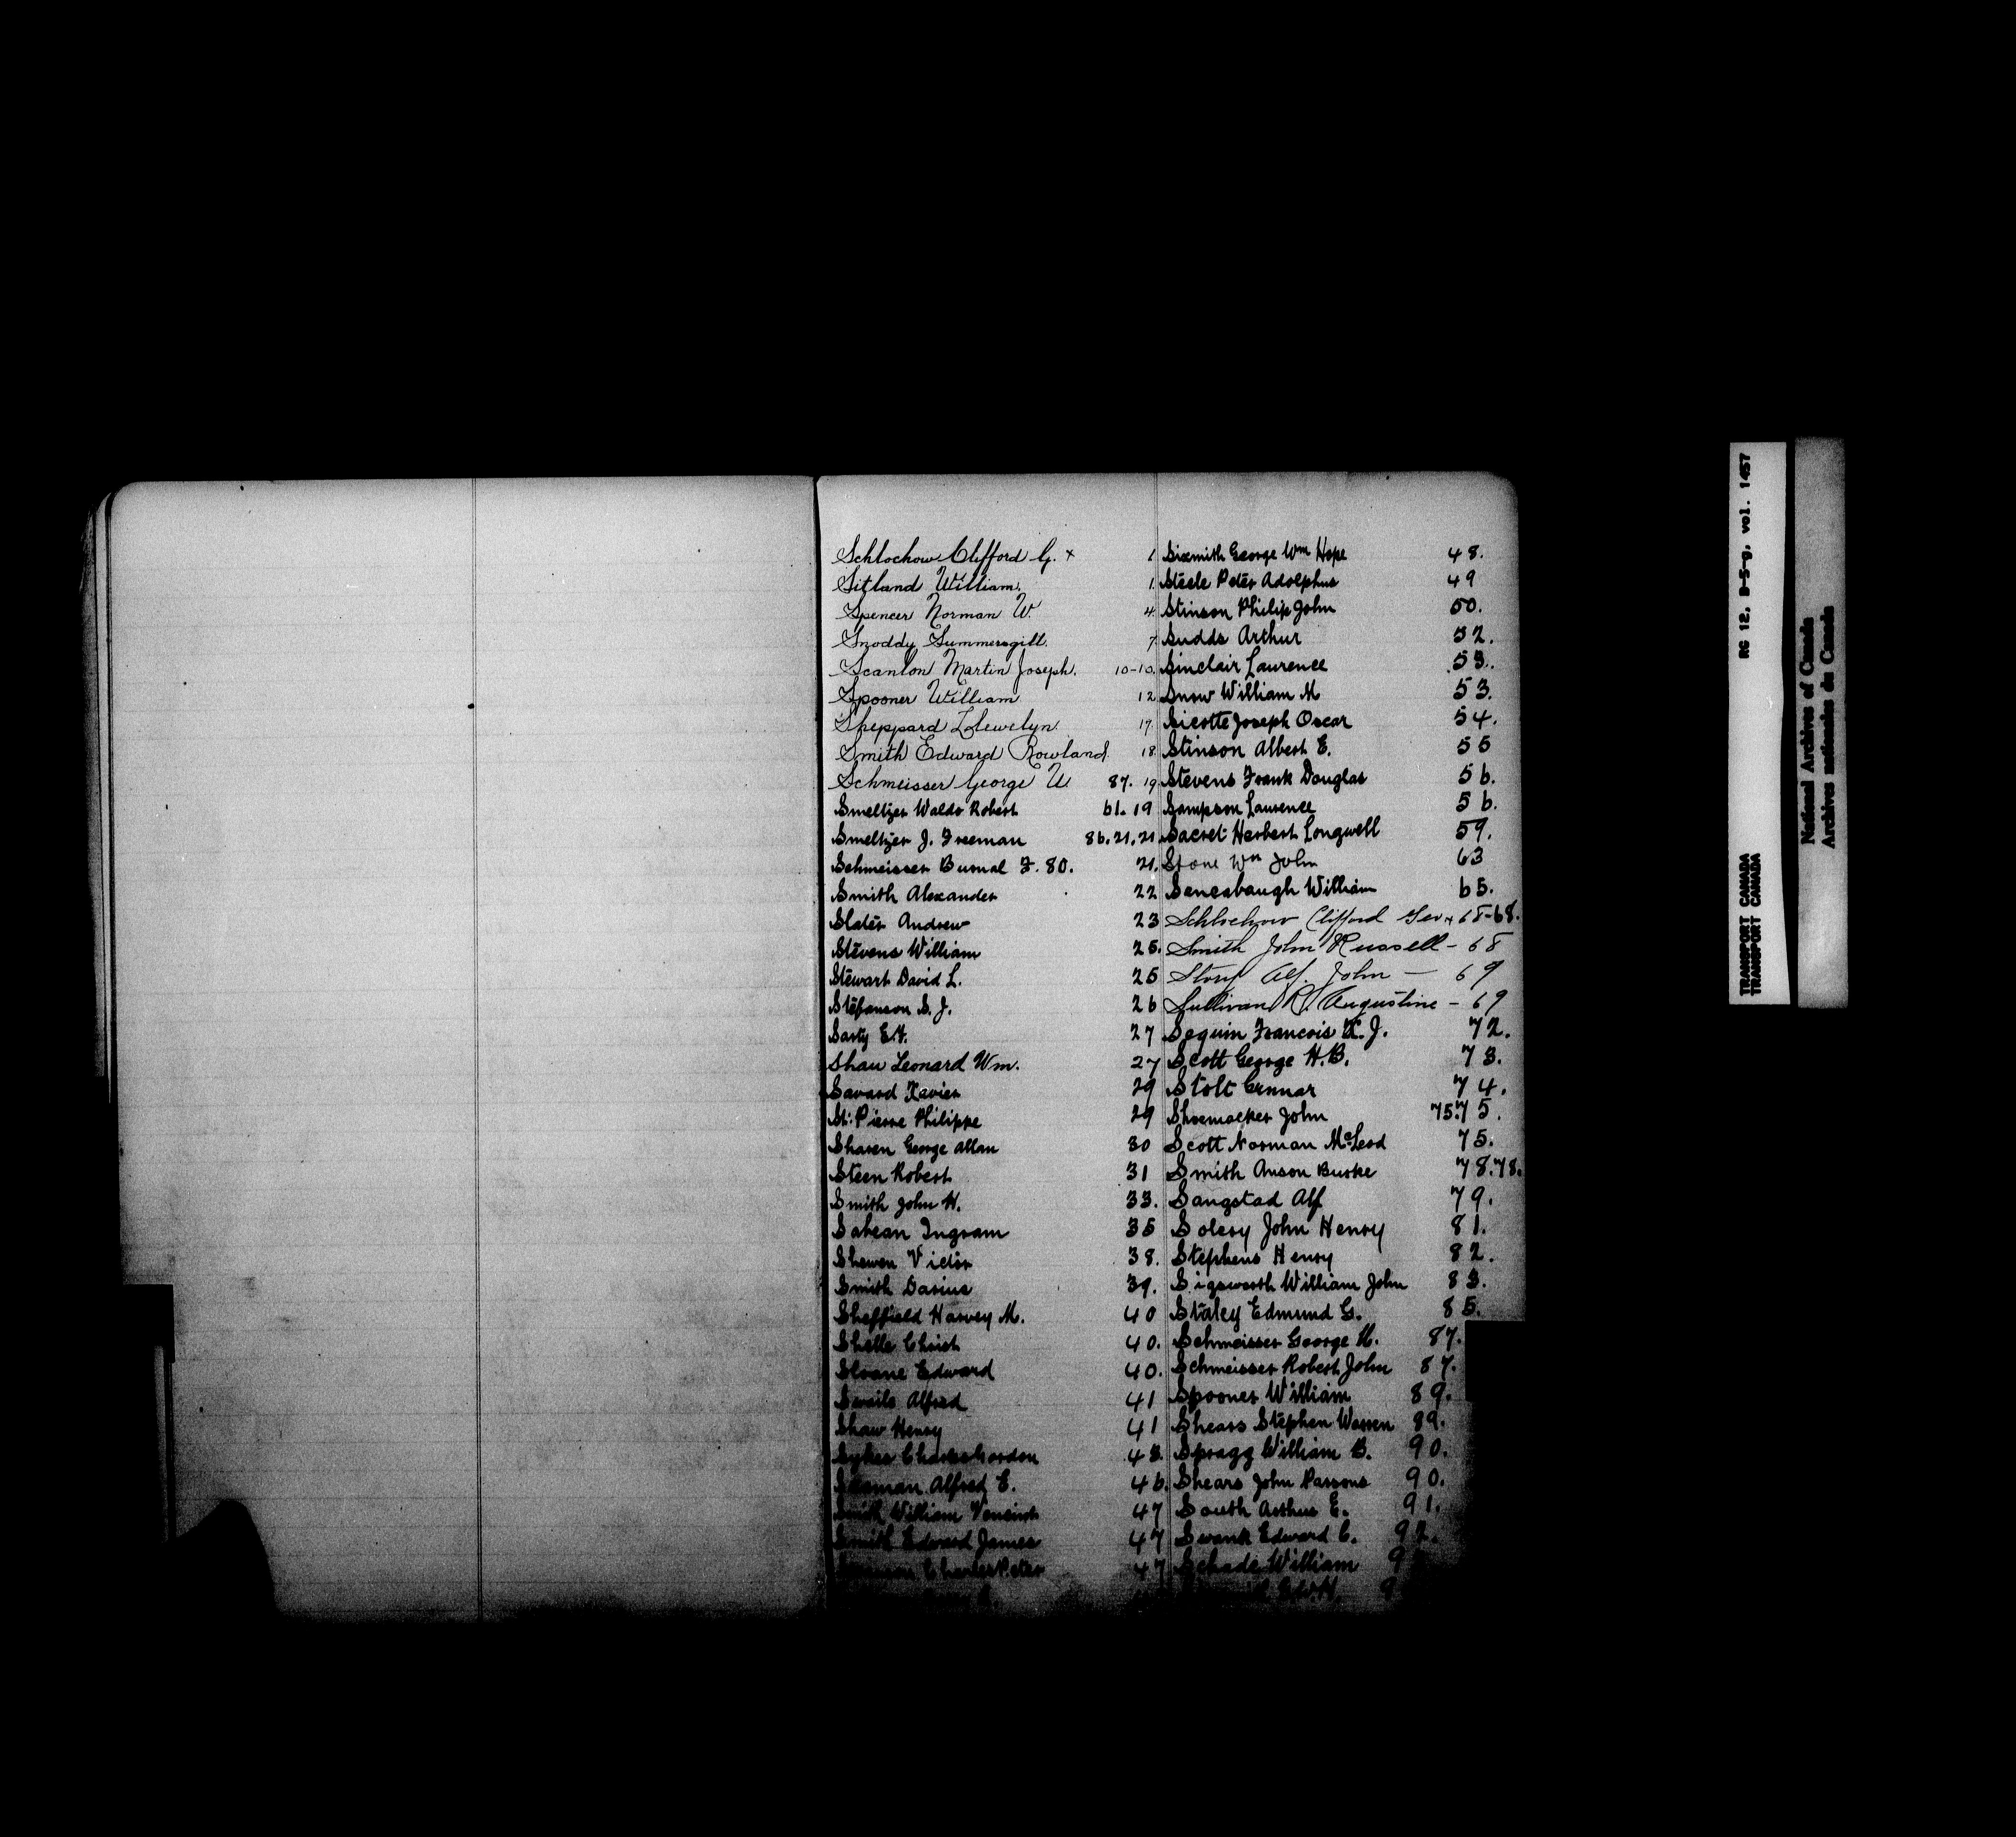 Schlochow Clifford G. x 1
Sitland William. 1.
Spencer Norman W. 4
Snoddy Summersgill. 7
Scanlon Martin Joseph. 10-10.
Spooner William 12
Sheppard Llewelyn. 17.
Smith Edward Rowland 18
Schmeisser George W 87. 19
Smeltzer Waldo Robert 61. 19
Smeltzer J. Freeman 86. 21. 21
Schmeisser Burnal F. 80. 21.
Smith Alexander 22
Slater Andrew 23
Stevens William 25.
Stewart David L. 25
Stefanson S. J. 26
Sarty E.F. 27
Shaw Leonard Wm. 27
Savard Xavier 29
St. Pierre Philippe 29
Sharen George Allan 30
Steen Robert 31
Smith John H. 33.
Sabean Ingram 35
Shewen Victor 38.
Smith Darius 39.
Sheffield Harvey M. 40
Shelle Christ 40.
Sloane Edward 40.
Swails Alfred 41
Shaw Henry 41
Sykes Charles Gordon 43.
Alfred E. 46.
Smith William 47
Smith Edward James 47
Charles Peter 47
Sixmith George Wm Hope 48.
Steele Peter Adolphus 49
Stinson Philip John 50.
Sudds Arthur 52.
Sinclair Laurence 53.
Snow William M 53.
Sicotte Joseph Oscar 54.
Stinson Albert E. 55
Stevens Frank Douglas 56.
Sampson Laurence 56.
Sacret Herbert Longwell 59.
Stone Wm John 63
Senesbaugh William 65.
Schlochow Clifford Geo x 68-68.
Smith John Russell - 68
Story Alf. John - 69
Sullivan R. Augustine - 69
Seguin Francois X. J. 72.
Scott George H.B. 73.
Stolt Gunnar 74.
Shoemacker John 75.75.
Scott Norman McLeod 75.
Smith Anson Burke 78.78.
Sangstad Alf 79.
Solery John Henry 81.
Stephens Henry 82.
Sigsworth William John 83.
Staley Edmund G. 85.
Schmeisser George H. 87.
Schmeisser Robert John 87.
Spooner William 89.
Shears Stephen Warren 89.
Spragg William B. 90.
Shears John Parsons 90.
South Arthur E. 91.
Swank Edward C. 92.
Schade William
RG 12, B-5-g, vol. 1457
TRANSPORT CANADA
TRANSPORT CANADA
National Archives of Canada
Archives nationales du Canada